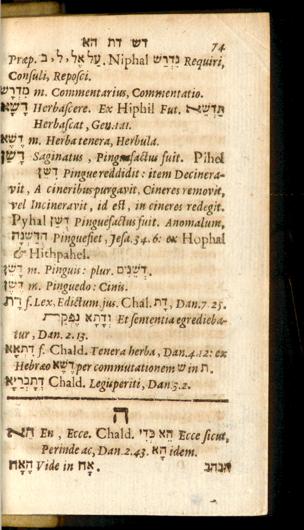 דש דת הא 74
Præp. על אל, ל, ב. Niphal נִדְרַשׁ Requiri,
Consuli, Reposci.
מִדְרָשׁ m. Commentarius, Commentatio.
דָּשָׁא Herbascere. Ex Hiphil Fut. תַּדְשֵׁא
Herbascat, Gen. 1.11.
דֶּשֶׁא m. Herba tenera, Herbula.
דָּשֵׁן Saginatus, Pinguefactus fuit. Pihel
דִּשֵּׁן Pingue reddidit: item Decinera-
vit, A cineribus purgavit. Cineres removit,
vel Incineravit, id est, in cineres redegit.
Pyhal דֻּשַּׁן Pinguefactus fuit. Anomalum,
הֻדַּשְׁנָה Pinguefiet, Jesa. 34. 6: ex Hophal
& Hithpahel.
דָּשֵׁן m. Pinguis: plur. דְּשֵׁנִים.
דֶּשֶׁן m. Pinguedo: Cinis.
דָּת f. Lex. Edictum, jus. Chal. דָּת, Dan. 7. 25.
וְדָתָא נֶפְקַת Et sententia egredieba-
tur, Dan. 2. 13.
דִּתְאָא f. Chald. Tenera herba, Dan. 4. 12: ex
Hebræo דֶּשֶׁא per commutationem ש in ת.
דְּתָבְרַיָּא Chald. Legisperiti, Dan. 3. 2.
ה
הֵא En, Ecce. Chald. הֵא כְּדִי Ecce sicut,
Perinde ac, Dan. 2. 43. הָא idem.
הֶאָח Vide in אָח.